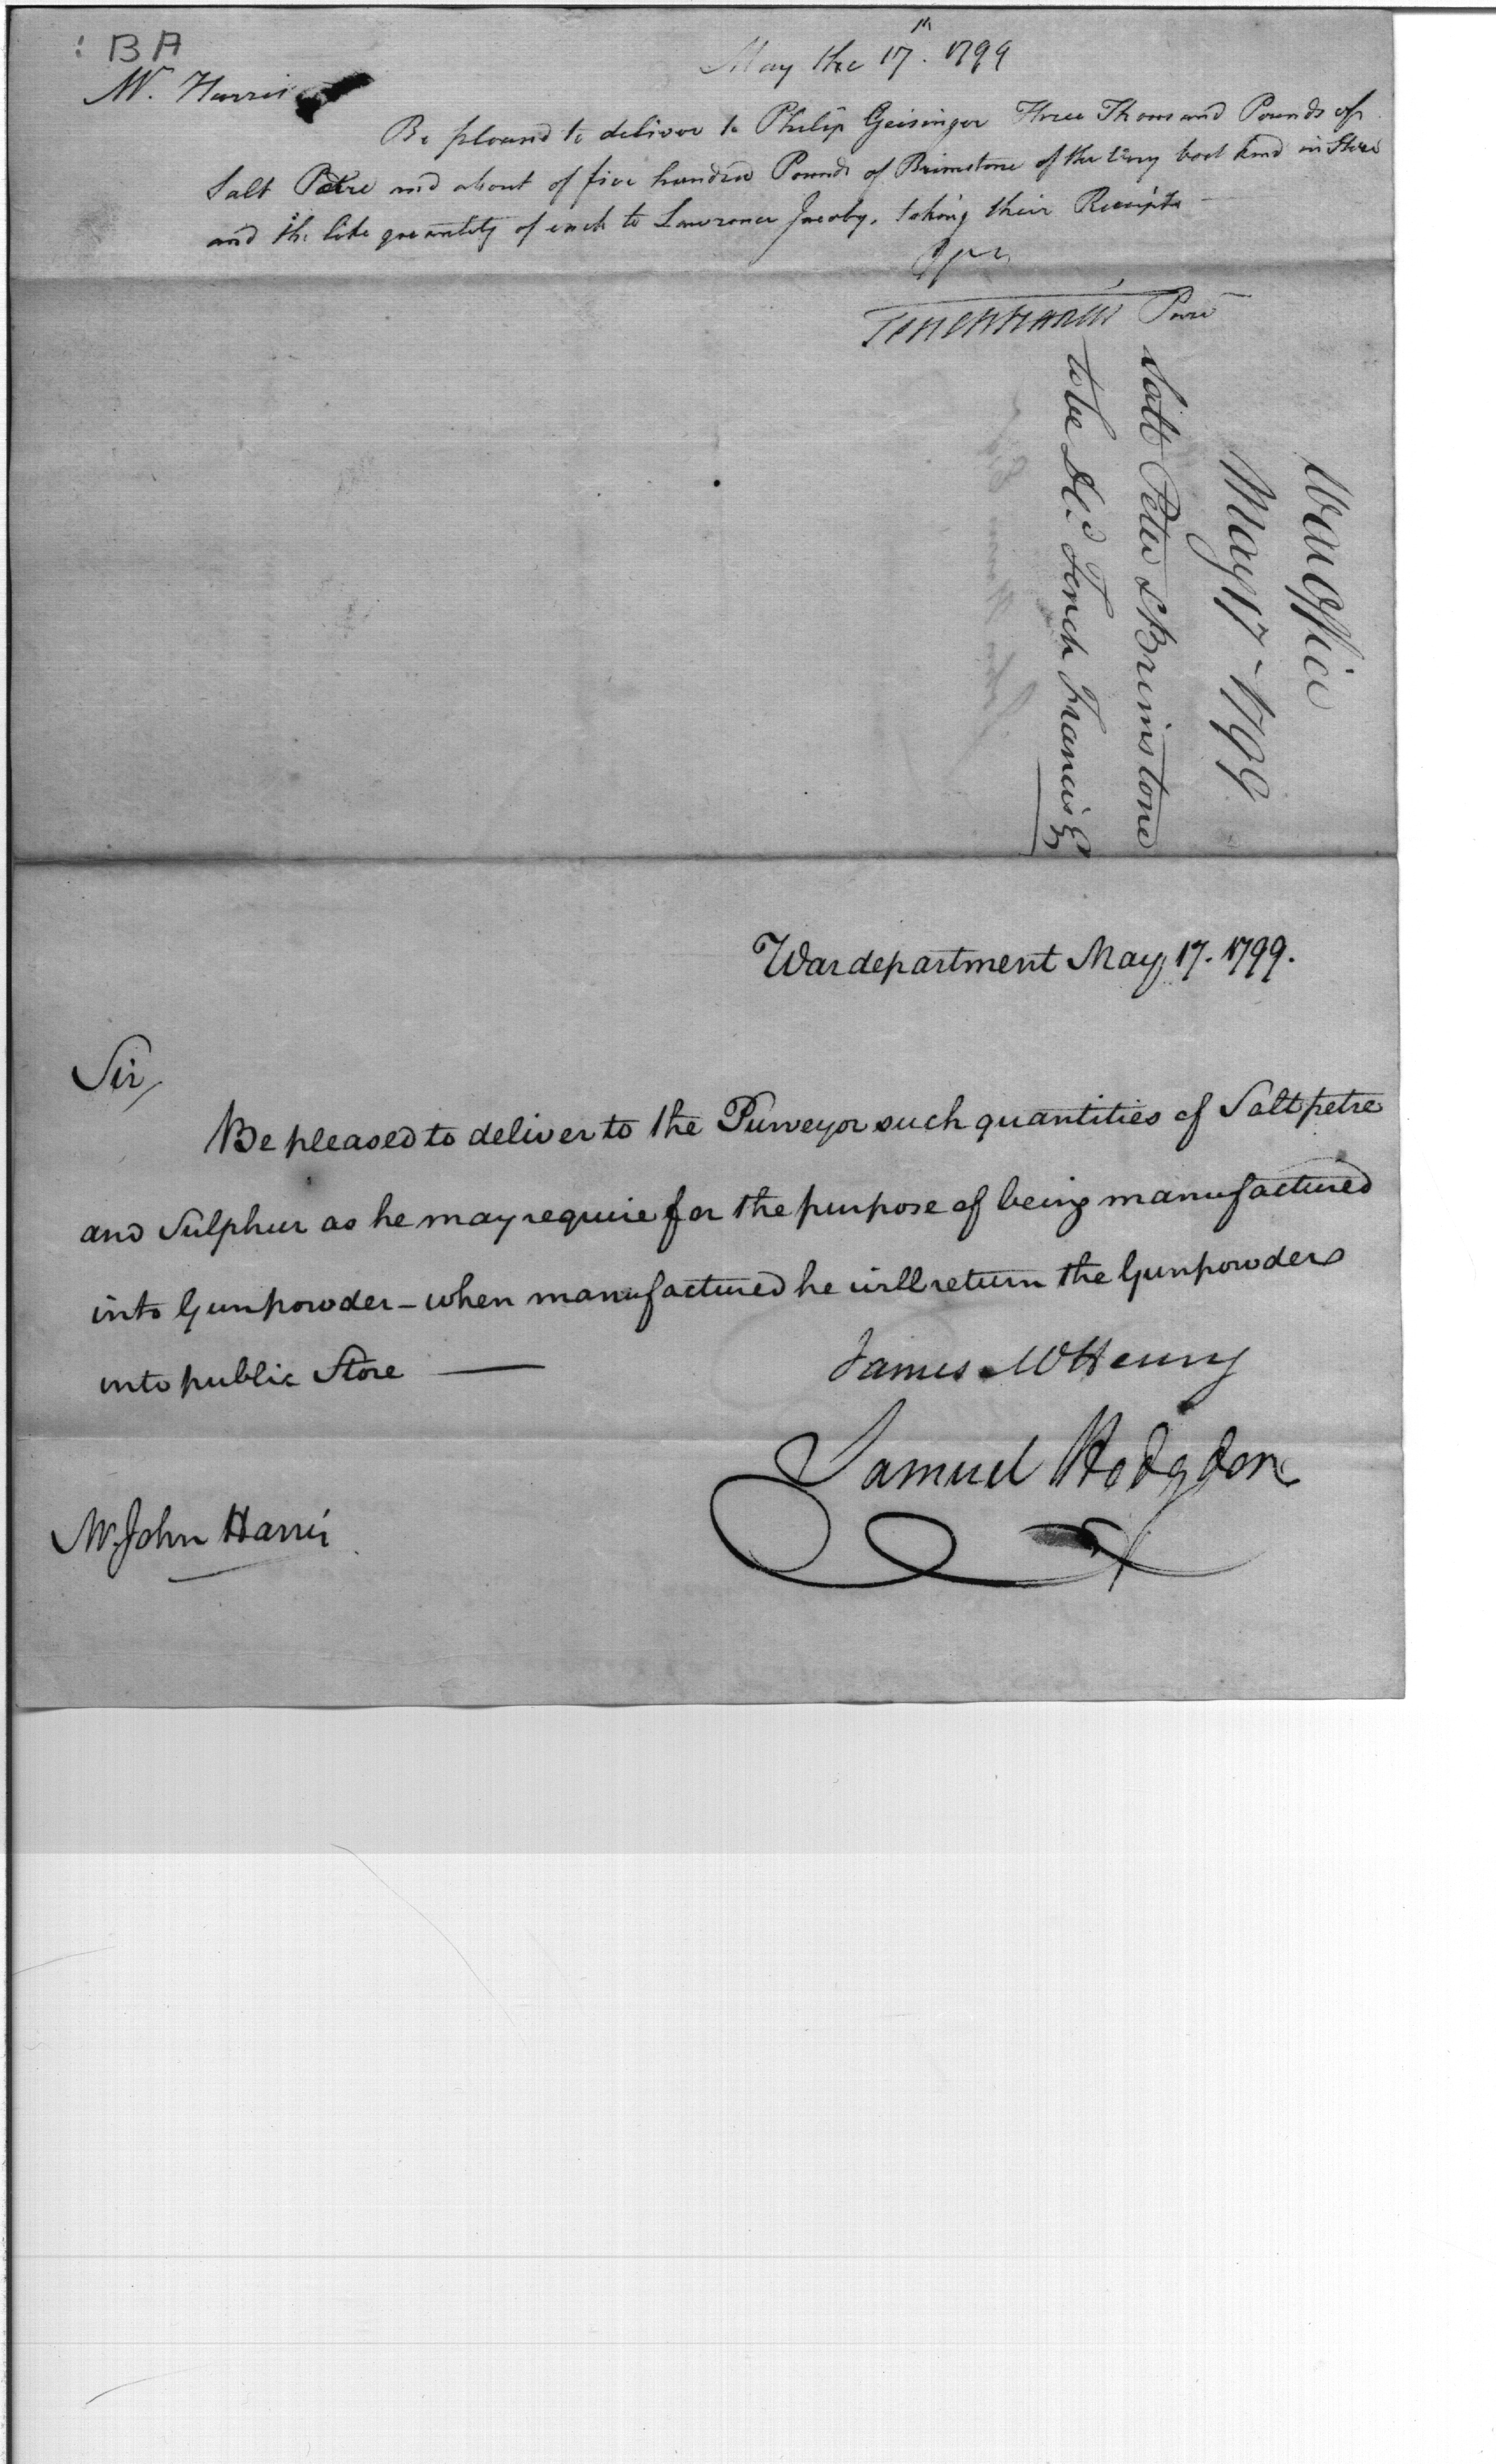 BA
May the 17th. 1799
Mr. Harris
Be pleased to deliver to Philip Geisinger Three Thousand Pounds of
Salt Petre and about of five hundred Pounds of Brimstone of the very best kind in Store
and the like quantity of each to Lawrence Jacoby, taking their Receipts
Tench Francis Purv
War Office
May 17 - 1799
Salt Peter & Brimstone
to be Dld. Tench Francis E
War department May, 17. 1799.
Sir,
Be pleased to deliver to the Purveyor such quantities of Saltpetre
and Sulphur as he may require for the purpose of being manufactured
into Gunpowder - when manufactured he will return the Gunpowder
into public Store
James McHenry
Samuel Hodgdon
Mr. John Harris